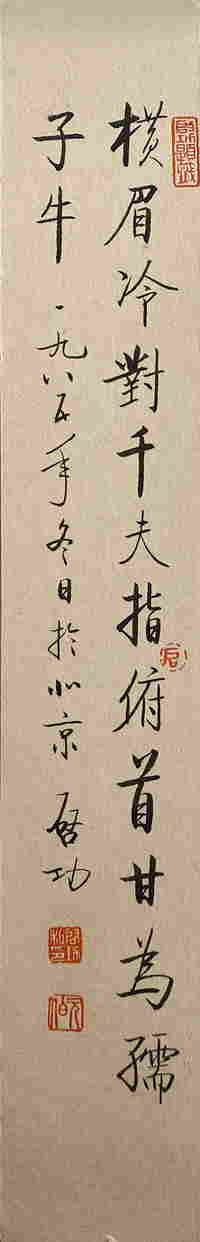 橫眉冷對千夫指俯首甘為孺
子牛 一九八五年冬日於北京 啓功